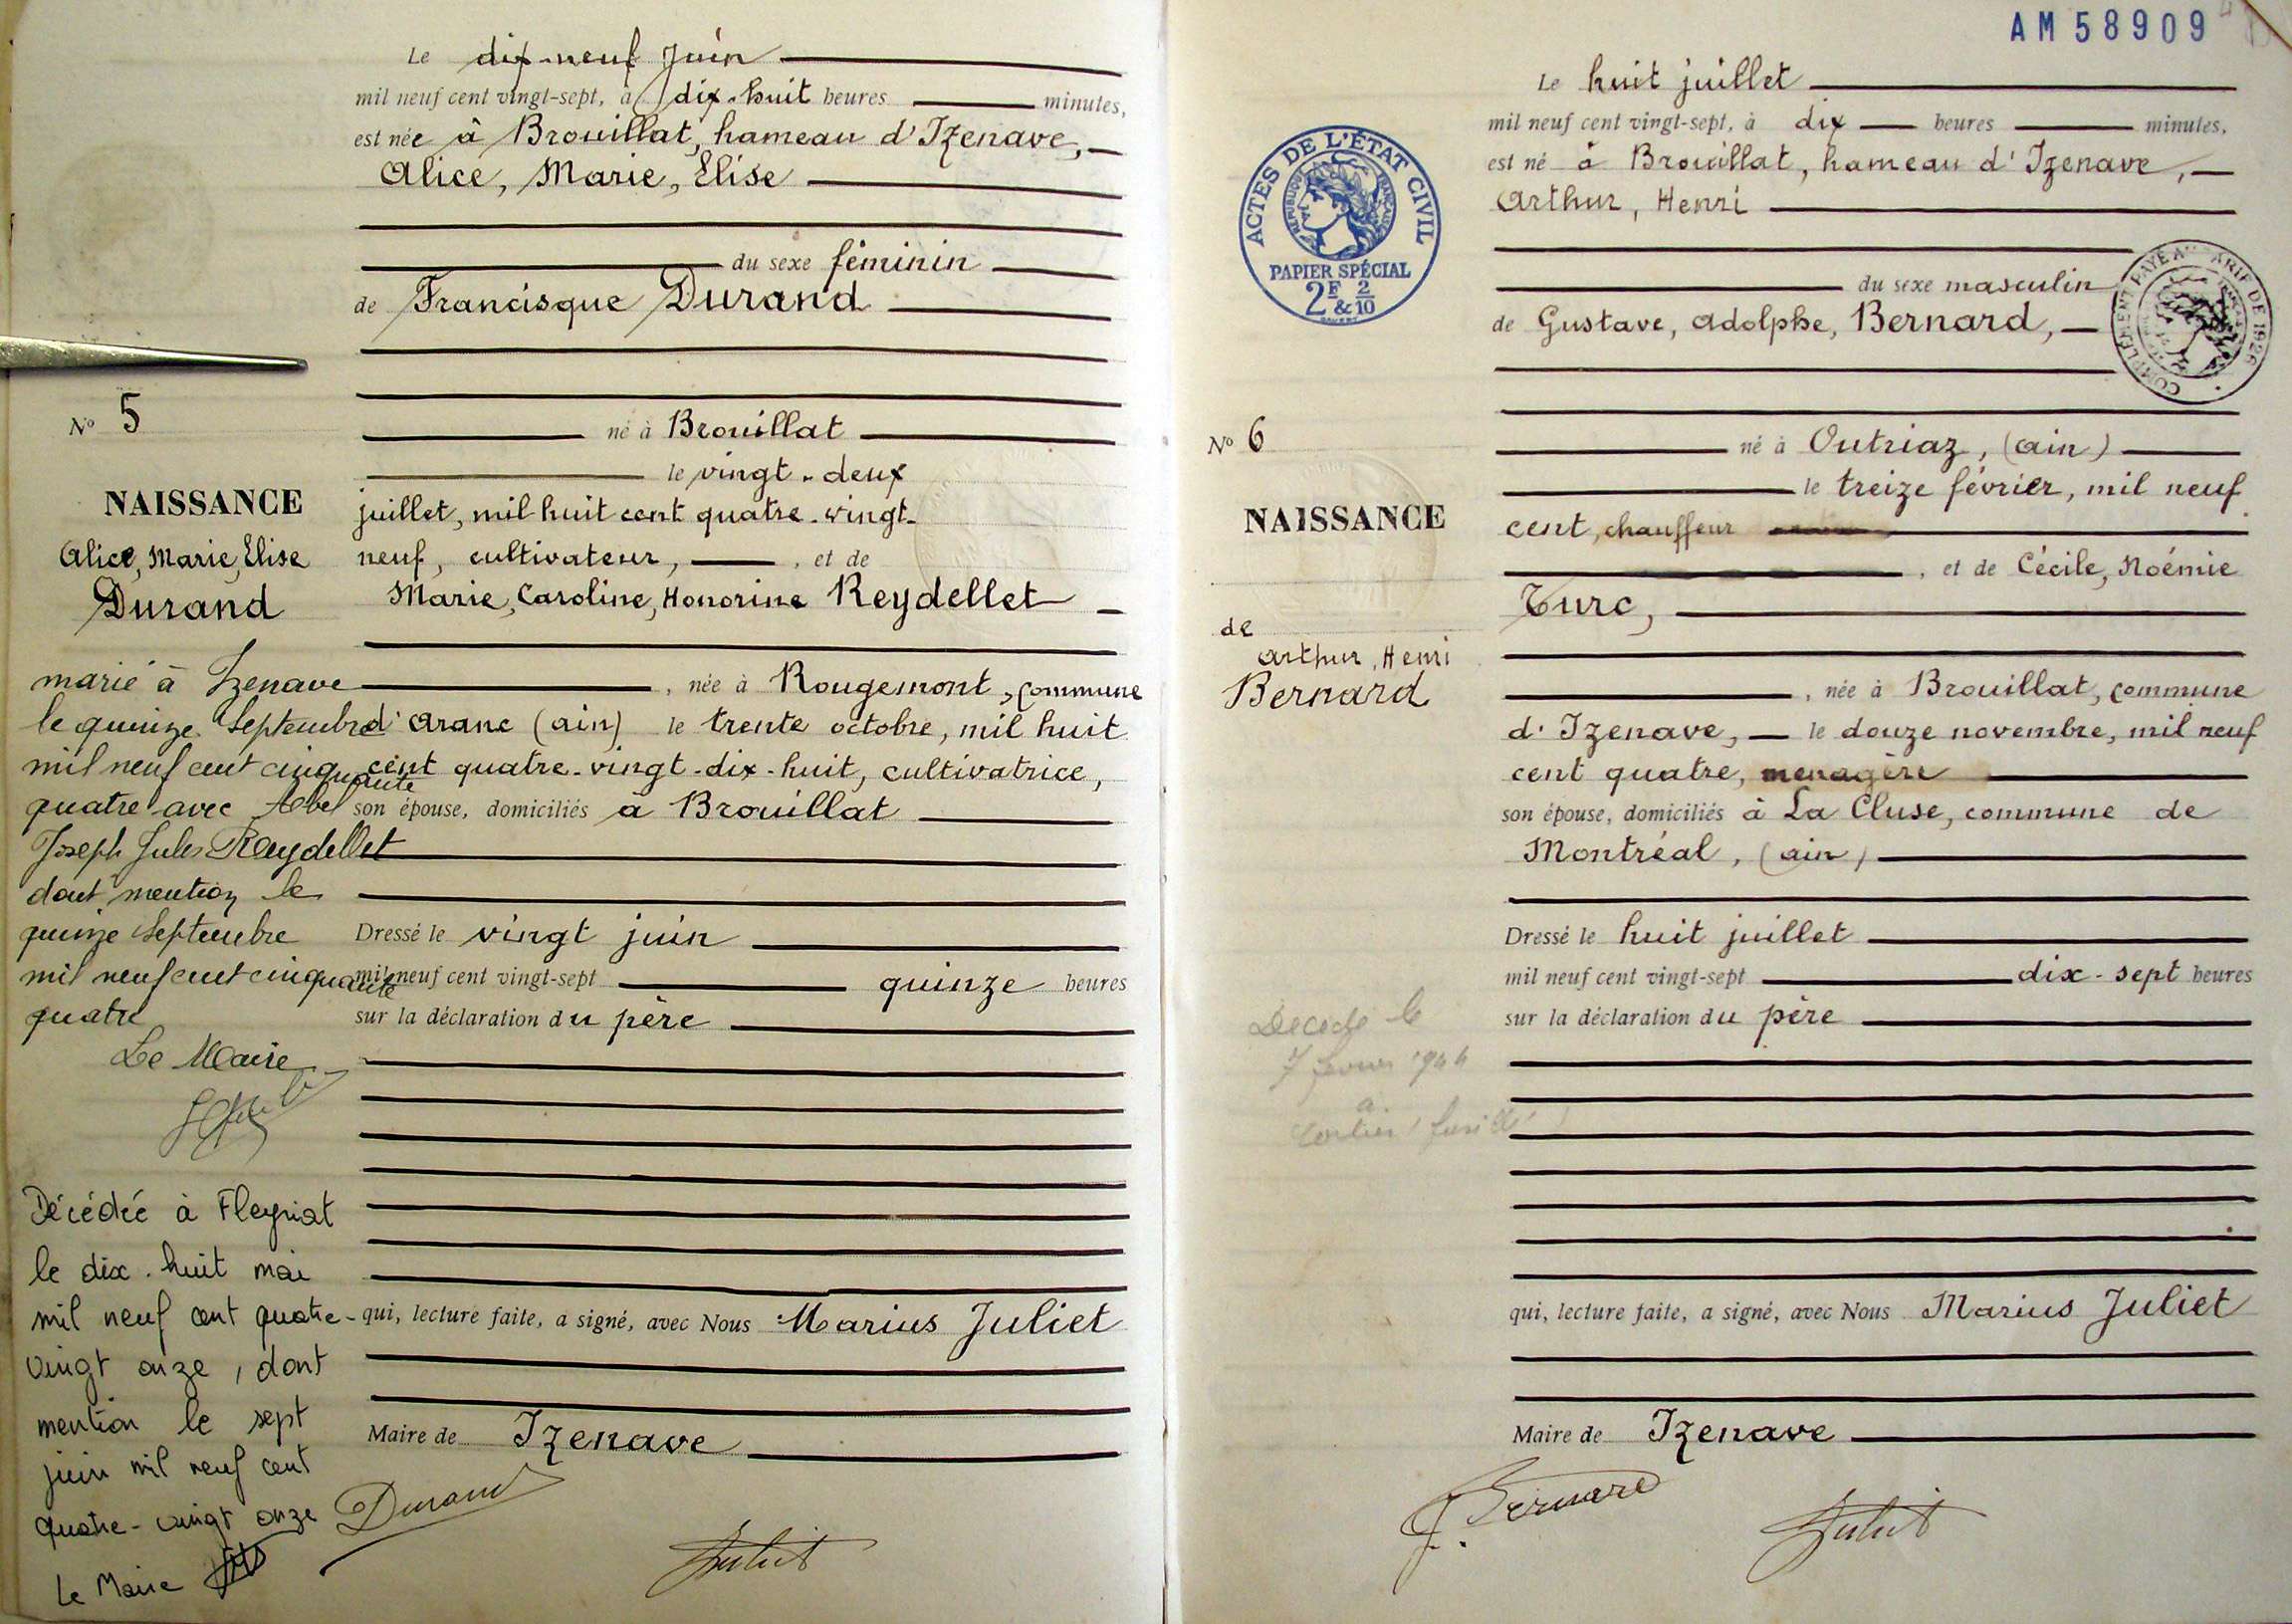 Le dix-neuf Juin
mil neuf cent vingt-sept, à dix-huit heures minutes,
est née à Brouillat, hameau d'Izenave,
Alice, Marie, Elise
du sexe féminin
de Francisque Durand
né à Brouillat
le vingt-deux
juillet, mil huit cent quatre-vingt-
neuf, cultivateur, , et de
Marie, Caroline, Honorine Reydellet
, née à Rougemont, commune
d'Aranc (Ain) le trente octobre, mil huit
cent quatre-vingt-dix-huit, cultivatrice,
son épouse, domiciliés à Brouillat
Dressé le vingt juin
mil neuf cent vingt-sept quinze heures
sur la déclaration du père
qui, lecture faite, a signé, avec Nous Marius Juliet
Maire de Izenave
Durand
Juliet
No 5
NAISSANCE
Alice, Marie, Elise
Durand
marié à Izenave
le quinze Septembre
mil neuf cent cinquante
quatre avec Abel
Joseph Jules Reydellet
dont mention le
quinze Septembre
mil neuf cent cinquante
quatre
Le Maire
Décédée à Fleyriat
le dix-huit mai
mil neuf cent quatre-
vingt onze, dont
mention le sept
juin mil neuf cent
quatre-vingt onze
Le Maire
AM 58909
Le huit juillet
mil neuf cent vingt-sept, à dix heures minutes,
est né à Brouillat, hameau d'Izenave,
Arthur, Henri
du sexe masculin
de Gustave, Adolphe, Bernard,
né à Outriaz, (Ain)
le treize février, mil neuf
cent, chauffeur
, et de Cécile, Noémie
Turc,
, née à Brouillat, commune
d'Izenave, le douze novembre, mil neuf
cent quatre, menagère
son épouse, domiciliés à La Cluse, commune de
Montréal, (Ain)
Dressé le huit juillet
mil neuf cent vingt-sept dix-sept heures
sur la déclaration du père
qui, lecture faite, a signé, avec Nous Marius Juliet
Maire de Izenave
Bernard
Juliet
ACTES DE L'ÉTAT CIVIL
RÉPUBLIQUE FRANÇAISE
PAPIER SPÉCIAL
2F & 2/10
COMPLÉMENT PAYÉ AU TARIF DE 1926
No 6
NAISSANCE
de
Arthur, Henri
Bernard
Décédé le
7 février 1944
à
fusillé